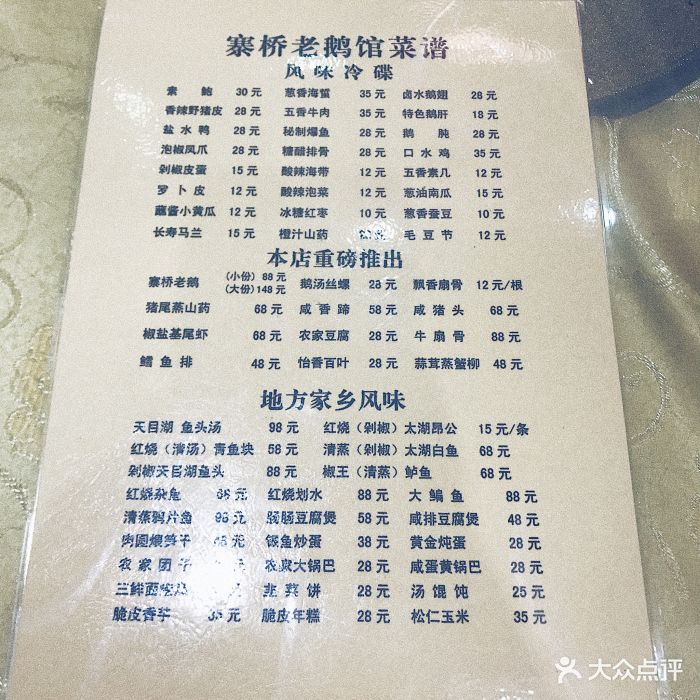 寨桥老鹅馆菜谱
风味冷碟
素 鲍 30元 葱香海蜇 35元 卤水鹅翅 28元
香辣野猪皮 28元 五香牛肉 35元 特色鹅肝 18元
盐水鸭 28元 秘制爆鱼 28元 鹅 肫 28元
泡椒凤爪 28元 糖醋排骨 28元 口水鸡 35元
剁椒皮蛋 15元 酸辣海带 12元 五香素几 12元
罗卜皮 12元 酸辣泡菜 12元 葱油南瓜 15元
蘸酱小黄瓜 12元 冰糖红枣 10元 葱香蚕豆 10元
长寿马兰 15元 橙汁山药 元 毛豆节 12元
本店重磅推出
寨桥老鹅 (小份) 88元 (大份) 148元 鹅汤丝螺 28元 飘香扇骨 12元/根
猪尾蒸山药 68元 咸香蹄 58元 咸猪头 68元
椒盐基尾虾 68元 农家豆腐 28元 牛扇骨 88元
鳕鱼排 48元 怡香百叶 28元 蒜茸蒸蟹柳 48元
地方家乡风味
天目湖 鱼头汤 98元 红烧（剁椒）太湖昂公 15元/条
红烧（清汤）青鱼块 58元 清蒸（剁椒）太湖白鱼 68元
剁椒天目湖鱼头 88元 椒王（清蒸）鲈鱼 68元
红烧杂鱼 68元 红烧划水 88元 大鳊鱼 88元
清蒸鸦片鱼 98元 肠肠豆腐煲 58元 咸排豆腐煲 48元
肉圆煨笋子 48元 饭鱼炒蛋 38元 黄金炖蛋 28元
农家团子 元 农家大锅巴 28元 咸蛋黄锅巴 28元
三鲜面疙瘩 元 韭菜饼 28元 汤馄饨 25元
脆皮香芋 35元 脆皮年糕 28元 松仁玉米 35元
大众点评